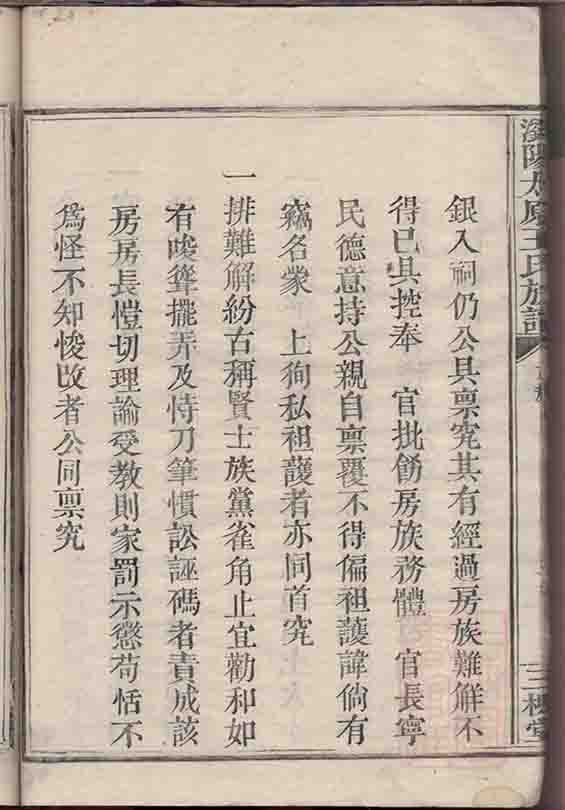 瀏陽太原王氏族譜
三槐堂
銀入祠仍公具禀究其有經過房族難解不
得已具控奉 官批飭房族務體 官長寧
民德意持公親自禀覆不得偏袒護諱倘有
竊名蒙 上徇私袒護者亦同首究
一排難解紛古稱賢士族黨雀角止宜勸和如
有唆聳擺弄及恃刀筆慣訟誣碼者責成該
房房長愷切理論受教則家罰示懲苟恬不
為怪不知悛改者公同禀究